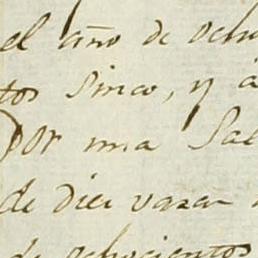 el año de ocho
tos Sinco, y á
Por una Sal
de diez varas
de ochocientos